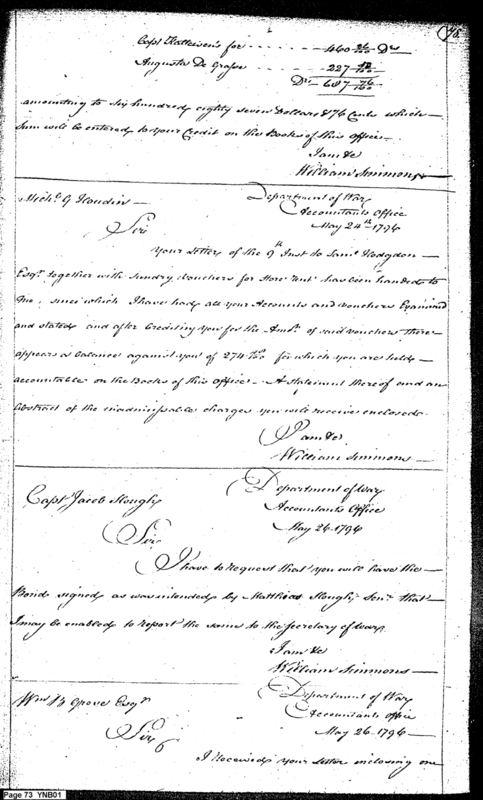 73
Capt Hatheison's for - - - - - 460 26/100 Drs
Augusta De Grasse - - - - - 227 50/100
Drs 687 76/100
amounting to Six hundred eighty seven Dollars & 76 Cents which
Sum will be entered to your Credit on the Books of this office
I am &c
William Simmons
Department of War
Mich. G Houdin Accountants Office
May 24th 1796
Sir
Your letter of the 9th Inst to Saml Hodgdon
Esqr together with sundry vouchers for Store Rent has been handed to
me, since which I have had all your Accounts and vouchers Examined
and stated and after Crediting you for the Amt. of said vouchers there
appears a balance against you of 274 /100 for which you are held
accountable on the Books of this office - A statement thereof and an
Abstract of the inadmissable charges you will receive enclosed.
I am &c
William Simmons
Department of War
Capt Jacob Slough Accountants Office
May 26 1796
Sir
I have to request that you will have the
Bond signed as was intended by Matthias Slough Senr that
I may be enabled to report the same to the Secretary of War
I am &c
William Simmons
Department of War
Wm B Grove Esqr Accountants Office
May 26 1796
Sir
I Received your letter inclosing one
Page 73 YNB01